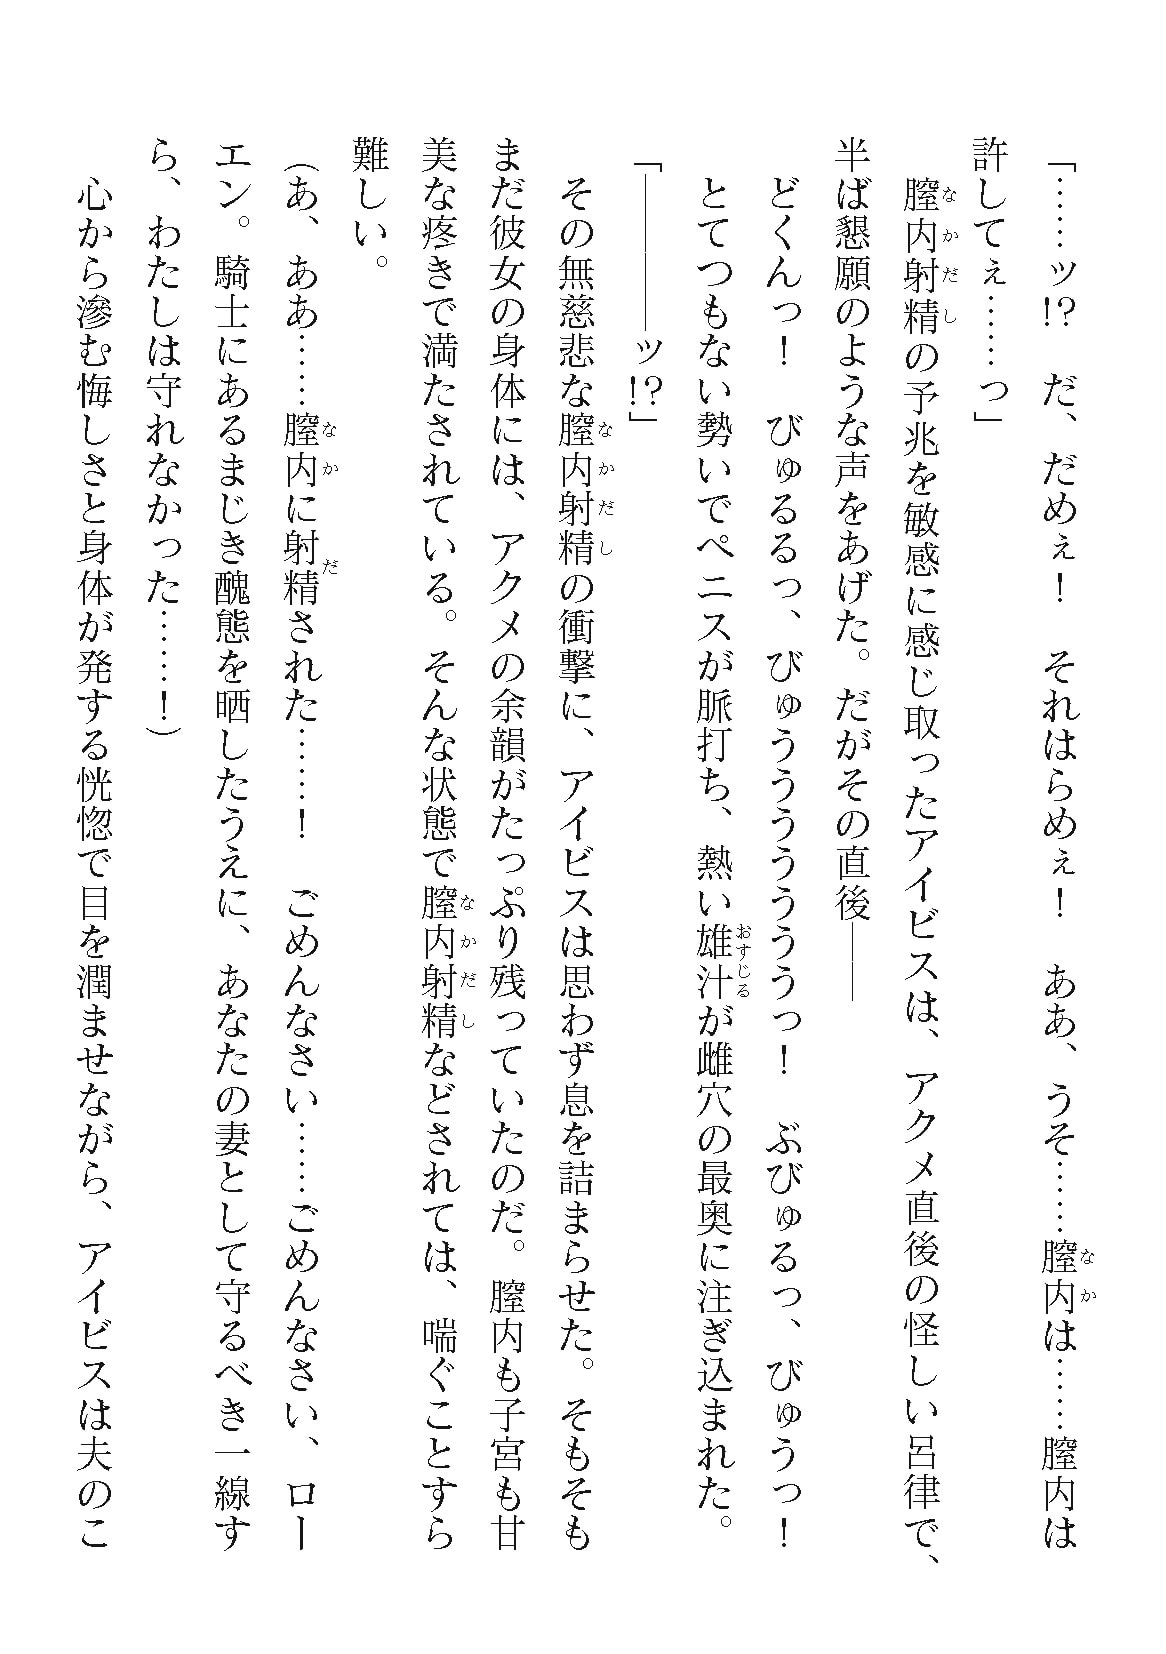 なか
「……ッ!?　だ、だめぇ！　それはらめぇ！　ああ、うそ……膣内は……膣内は
許してぇ……っ」
なかだし
膣内射精の予兆を敏感に感じ取ったアイビスは、アクメ直後の怪しい呂律で、
半ば懇願のような声をあげた。だがその直後――
どくんっ！　びゅるるっ、びゅうううううううっ！　ぶびゅるっ、びゅうっ！
おすじる
とてつもない勢いでペニスが脈打ち、熱い雄汁が雌穴の最奥に注ぎ込まれた。
「――――ッ!?」
なかだし
その無慈悲な膣内射精の衝撃に、アイビスは思わず息を詰まらせた。そもそも
まだ彼女の身体には、アクメの余韻がたっぷり残っていたのだ。膣内も子宮も甘
なかだし
美な疼きで満たされている。そんな状態で膣内射精などされては、喘ぐことすら
難しい。
なか　だ
（あ、ああ……膣内に射精された……！　ごめんなさい……ごめんなさい、ロー
エン。騎士にあるまじき醜態を晒したうえに、あなたの妻として守るべき一線す
ら、わたしは守れなかった……！）
心から滲む悔しさと身体が発する恍惚で目を潤ませながら、アイビスは夫のこ